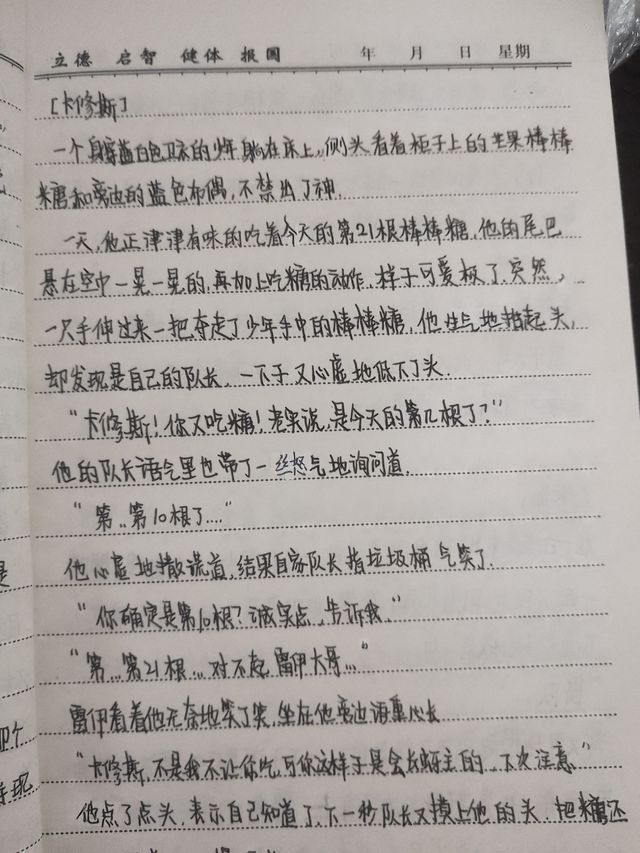 立德 启智 健体 报国 年 月 日 星期
[卡修斯]
一个身穿蓝白色卫衣的少年躺在床上,侧头看着柜子上的苹果棒棒
糖和旁边的蓝色布偶,不禁出了神.
一天,他正津津有味的吃着今天的第21根棒棒糖,他的尾巴
悬在空中一晃一晃的,再加上吃糖的动作,样子可爱极了.突然,
一只手伸过来一把夺走了少年手中的棒棒糖,他生气地抬起头,
却发现是自己的队长,一下子又心虚地低下了头.
“卡修斯!你又吃糖!老实说,是今天的第几根了?”
他的队长语气里也带了一丝怒气地询问道.
“第..第10根了....”
他心虚地撒谎道,结果自家队长指垃圾桶气笑了.
“你确定是第10根?诚实点,告诉我.”
“第...第21根...对不起,雷伊大哥...”
雷伊看着他无奈地笑了笑,坐在他旁边语重心长
“卡修斯,不是我不让你吃,可你这样子是会长蛀牙的...下次注意.”
他点了点头,表示自己知道了.下一秒队长又摸上他的头,把糖还